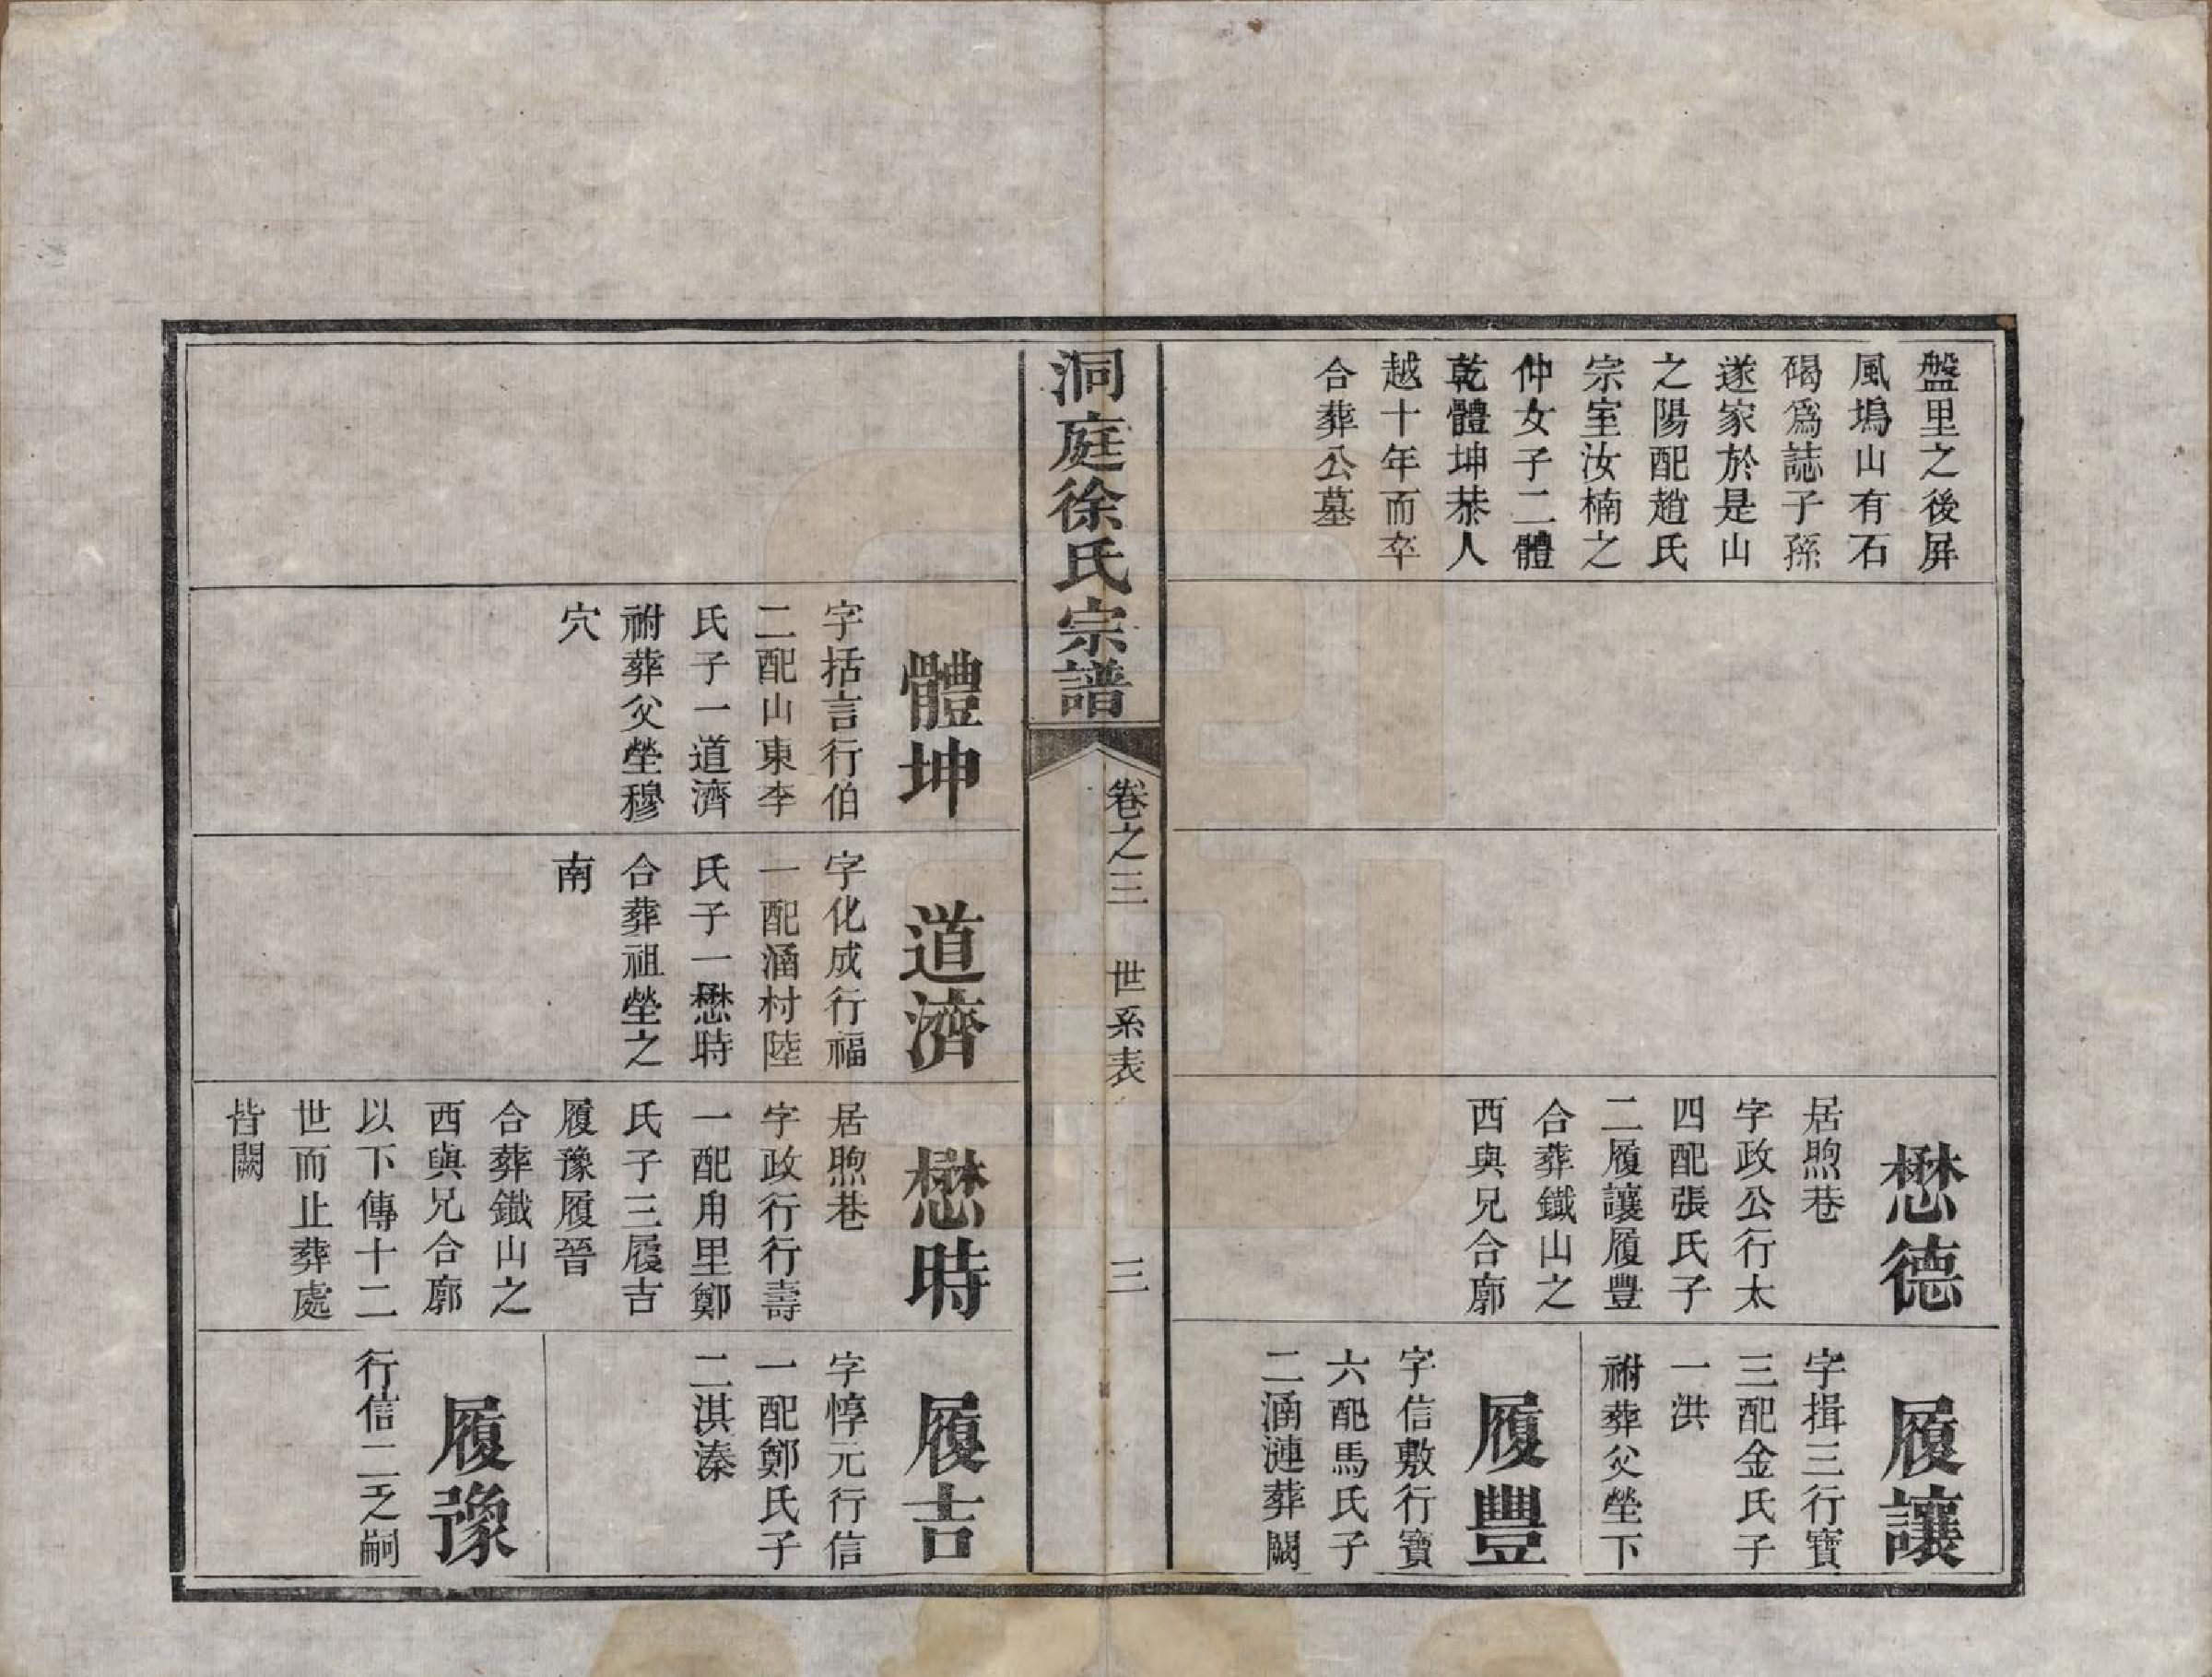 盤里之後屏
風塢山有石
碣爲誌子孫
遂家於是山
之陽配趙氏
宗室汝楠之
仲女子二體
乾體坤恭人
越十年而卒
合葬公墓
懋德
居煦巷
字政公行太
四配張氏子
二履讓履豐
合葬鐵山之
西與兄合廓
履讓
字揖三行寶
三配金氏子
一洪
祔葬父塋下
履豐
字信敷行寶
六配馬氏子
二涌漣葬闕
洞庭徐氏宗譜
卷之三 世系表 三
體坤
字括言行伯
二配山東李
氏子一道濟
祔葬父塋穆
穴
道濟
字化成行福
一配涵村陸
氏子一懋時
合葬祖塋之
南
懋時
居煦巷
字政行行壽
一配甪里鄭
氏子三履吉
履豫履晉
合葬鐵山之
西與兄合廓
以下傳十二
世而止葬處
皆闕
履吉
字惇元行信
一配鄭氏子
二淇溱
履豫
行信二乏嗣